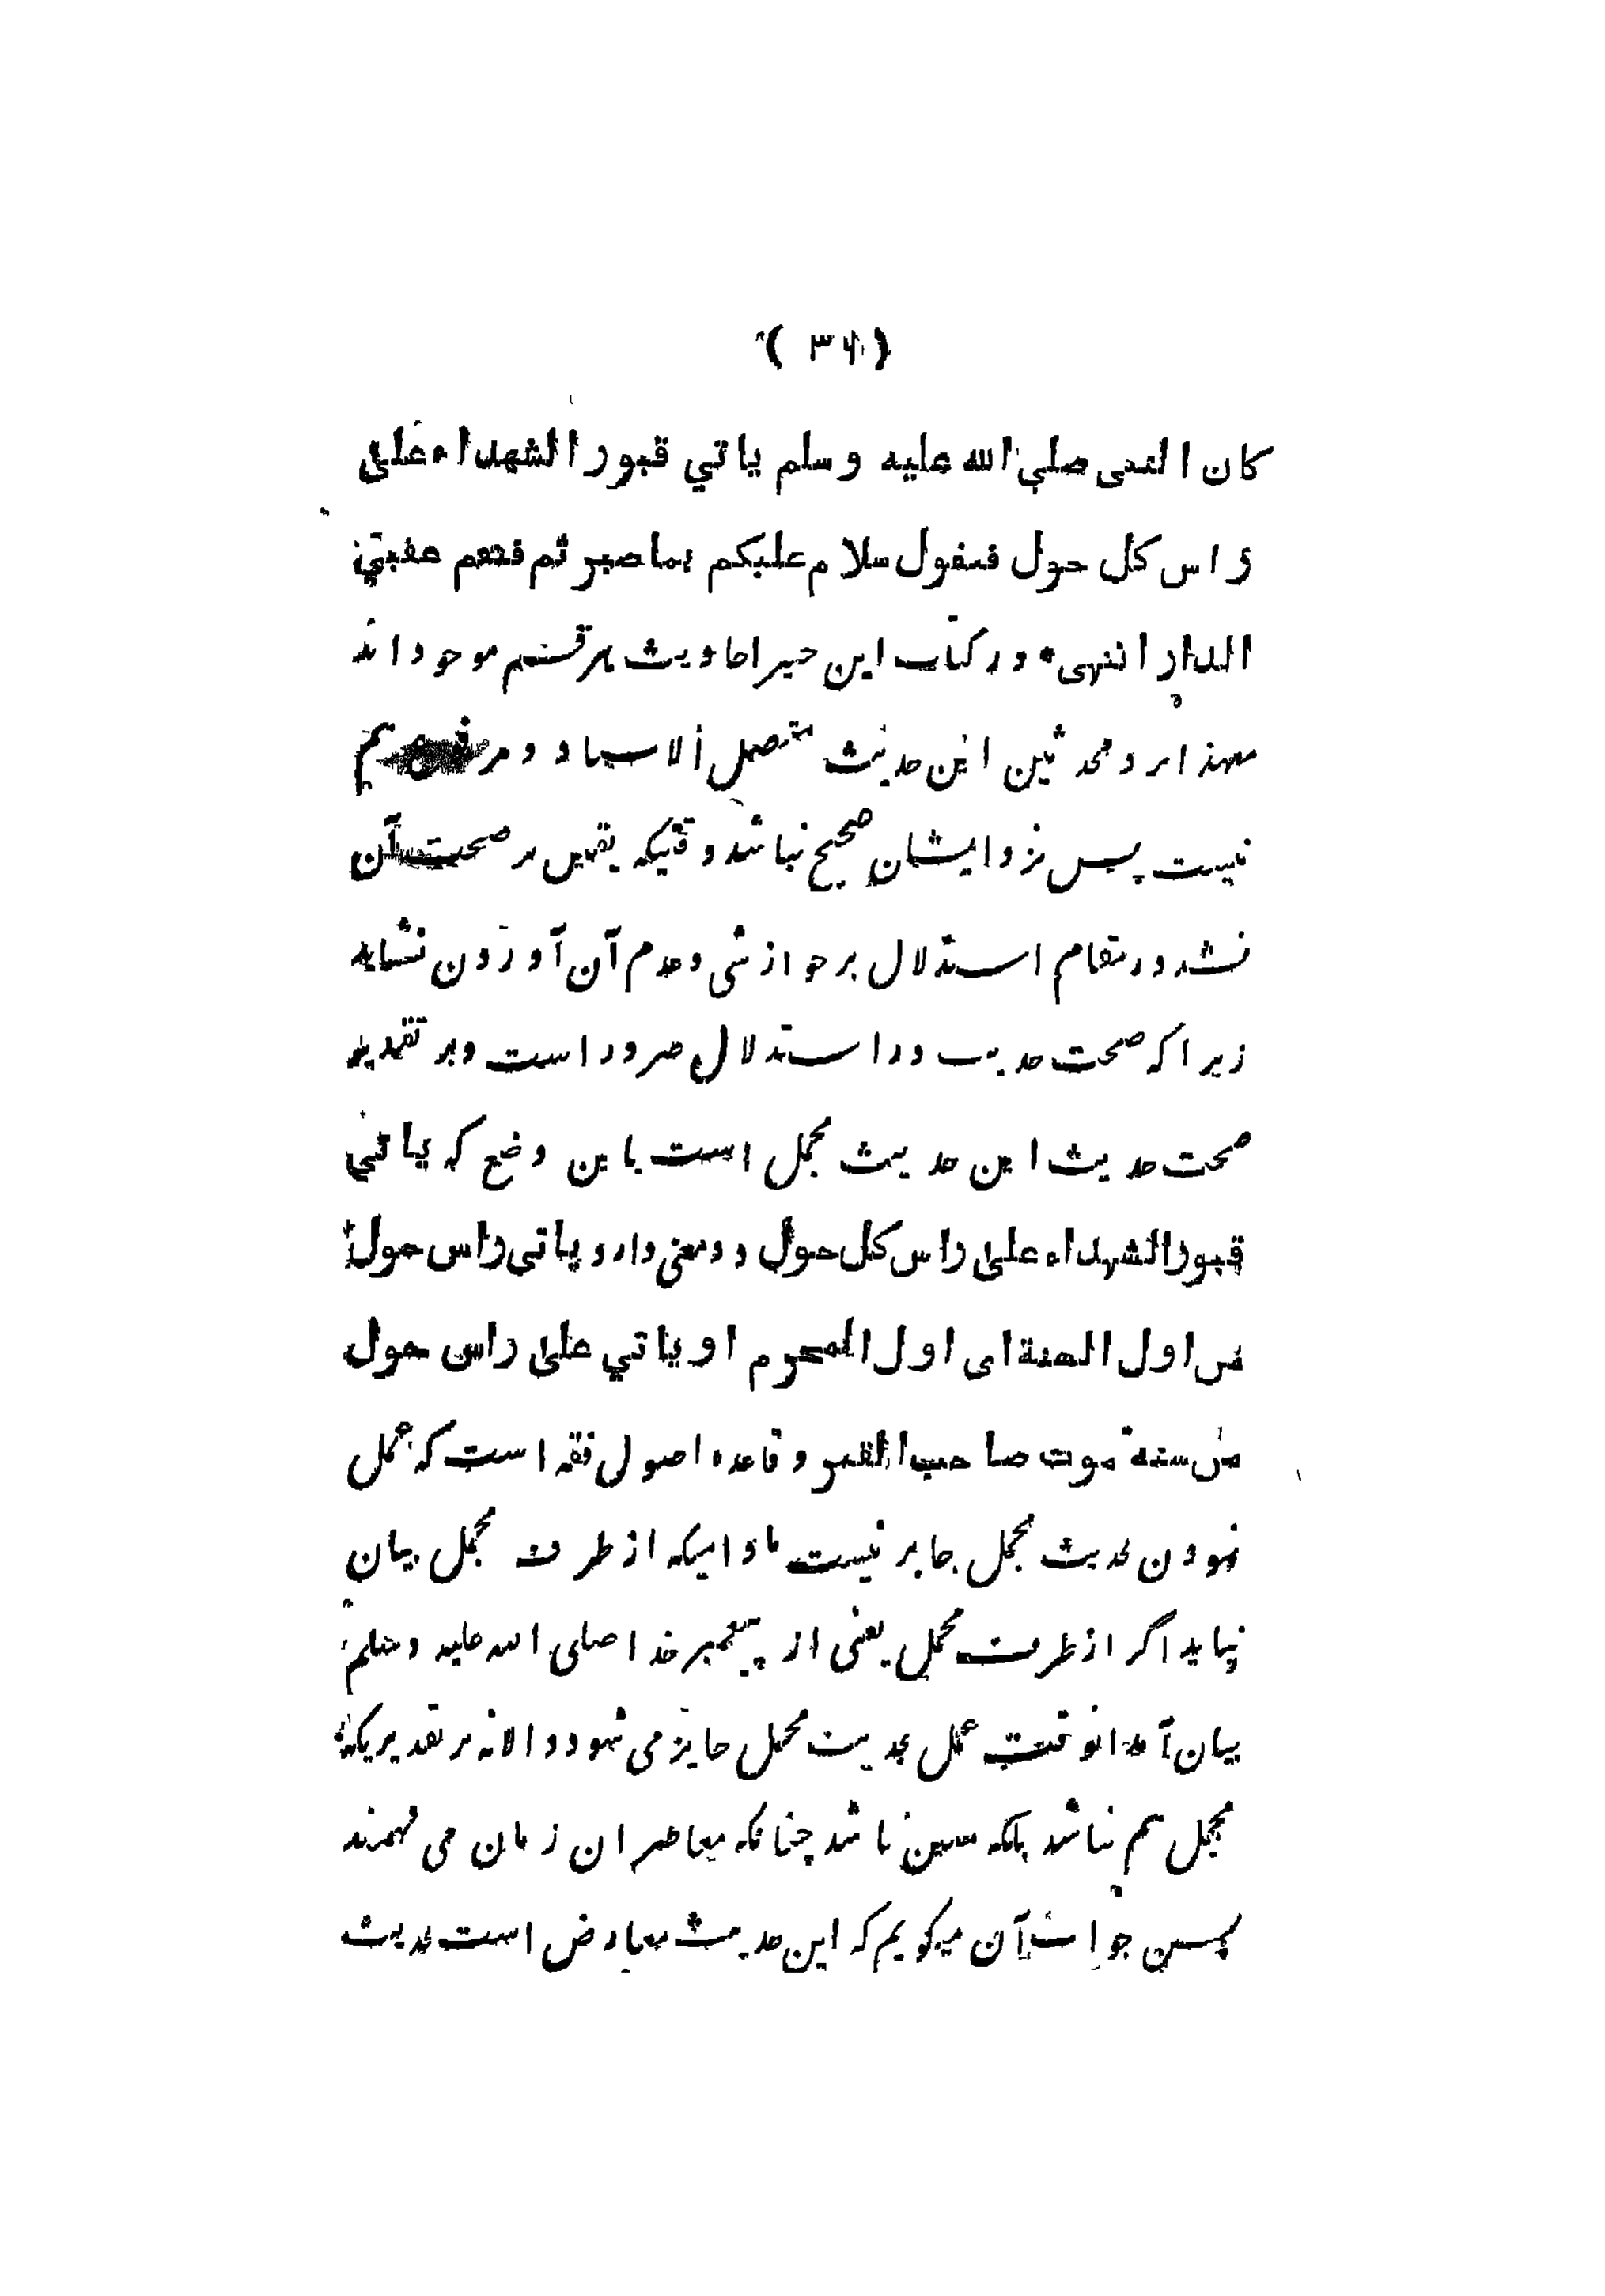 ( ٣٦ )
كان النبي صلي الله عليه و سلم ياتي قبور الشهداء على
راس كل حول فيقول سلام عليكم بما صبرتم فنعم عقبي
الدار انتهى • در کتاب ابن جریر احادیث هر قسم موجود اند
نزد محدثین این حدیث متصل الاسناد و مرفوع هم
نیست پس نزد ایشان صحیح نباشد وقتیکه یقین بر صحت آن
نشد در مقام استدلال بر جواز شی و عدم آن آوردن نشاید
زیرا که صحت حدیث در استدلال ضرور است و بر تقدیر
صحت حدیث این حدیث مجمل است باین وضع که ياتي
قبور الشهداء على راس كل حول دو معنی دارد ياتي راس حول
من اول السنة اى اول المحرم او ياتي على راس حول
من سنة موت صاحب القبر و قاعده اصول فقه است که عمل
نمودن بحدیث مجمل جایز نیست مادامیکه از طرف مجمل بیان
نیاید اگر از طرف مجمل یعنی از پیغمبر خدا صلی الله علیه وسلم
بیان آمد انوقت عمل بحدیث مجمل جایز می شود و الا نه بر تقدیریکه
مجمل هم نباشد بلکه مبین باشد چنانکه معاصران زمان می فهمند
پس جواب آن میگویم که این حدیث معارض است بحدیث